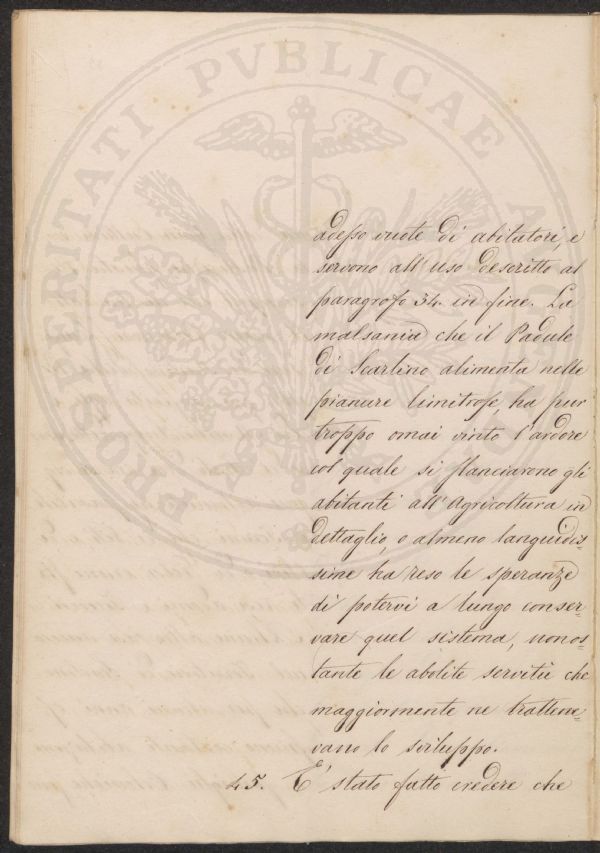 adesso vuote di abitatori, e
servono all'uso descritto al
paragrafo 34. in fine. La
malsania che il Padule
di Scarlino alimenta nelle
pianure limitrofe, ha pur
troppo omai vinto l'ardore
col quale si slanciarono gli
abitanti all'Agricoltura in
dettaglio, o almeno languidis=
sime ha reso le speranze
di potervi a lungo conser=
vare quel sistema, nonos=
tante le abolite servitù che
maggiormente ne trattene=
vano lo sviluppo.
45. E' stato fatto credere che
PROSPERITATI PVBLICAE